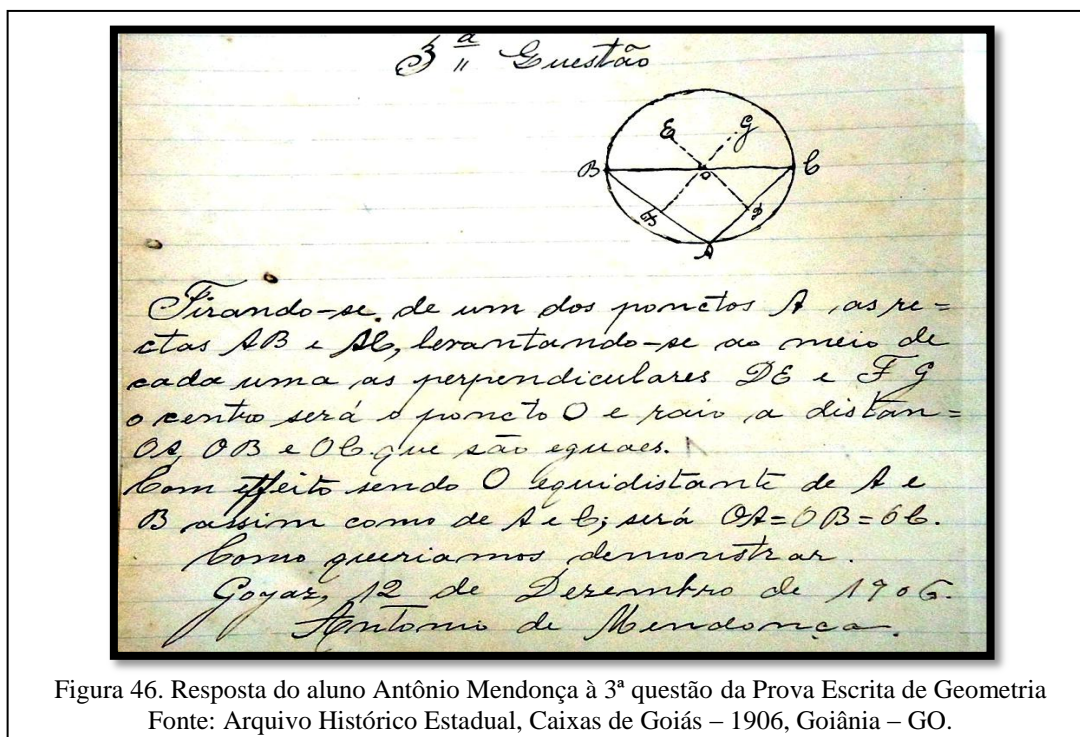 3ª Questão
E G
B O C
F D
A
Tirando-se de um dos ponctos A, as re=
ctas AB e AC, levantando-se ao meio de
cada uma as perpendiculares DE e FG
o centro será o poncto O e raio a distan=
OA, OB e OC que são eguaes.
Com effeito sendo O equidistante de A e
B assim como de A e C; será OA=OB=OC.
Como queriamos demonstrar.
Goyaz, 12 de Dezembro de 1906.
Antonio de Mendonça.
Figura 46. Resposta do aluno Antônio Mendonça à 3ª questão da Prova Escrita de Geometria
Fonte: Arquivo Histórico Estadual, Caixas de Goiás – 1906, Goiânia – GO.